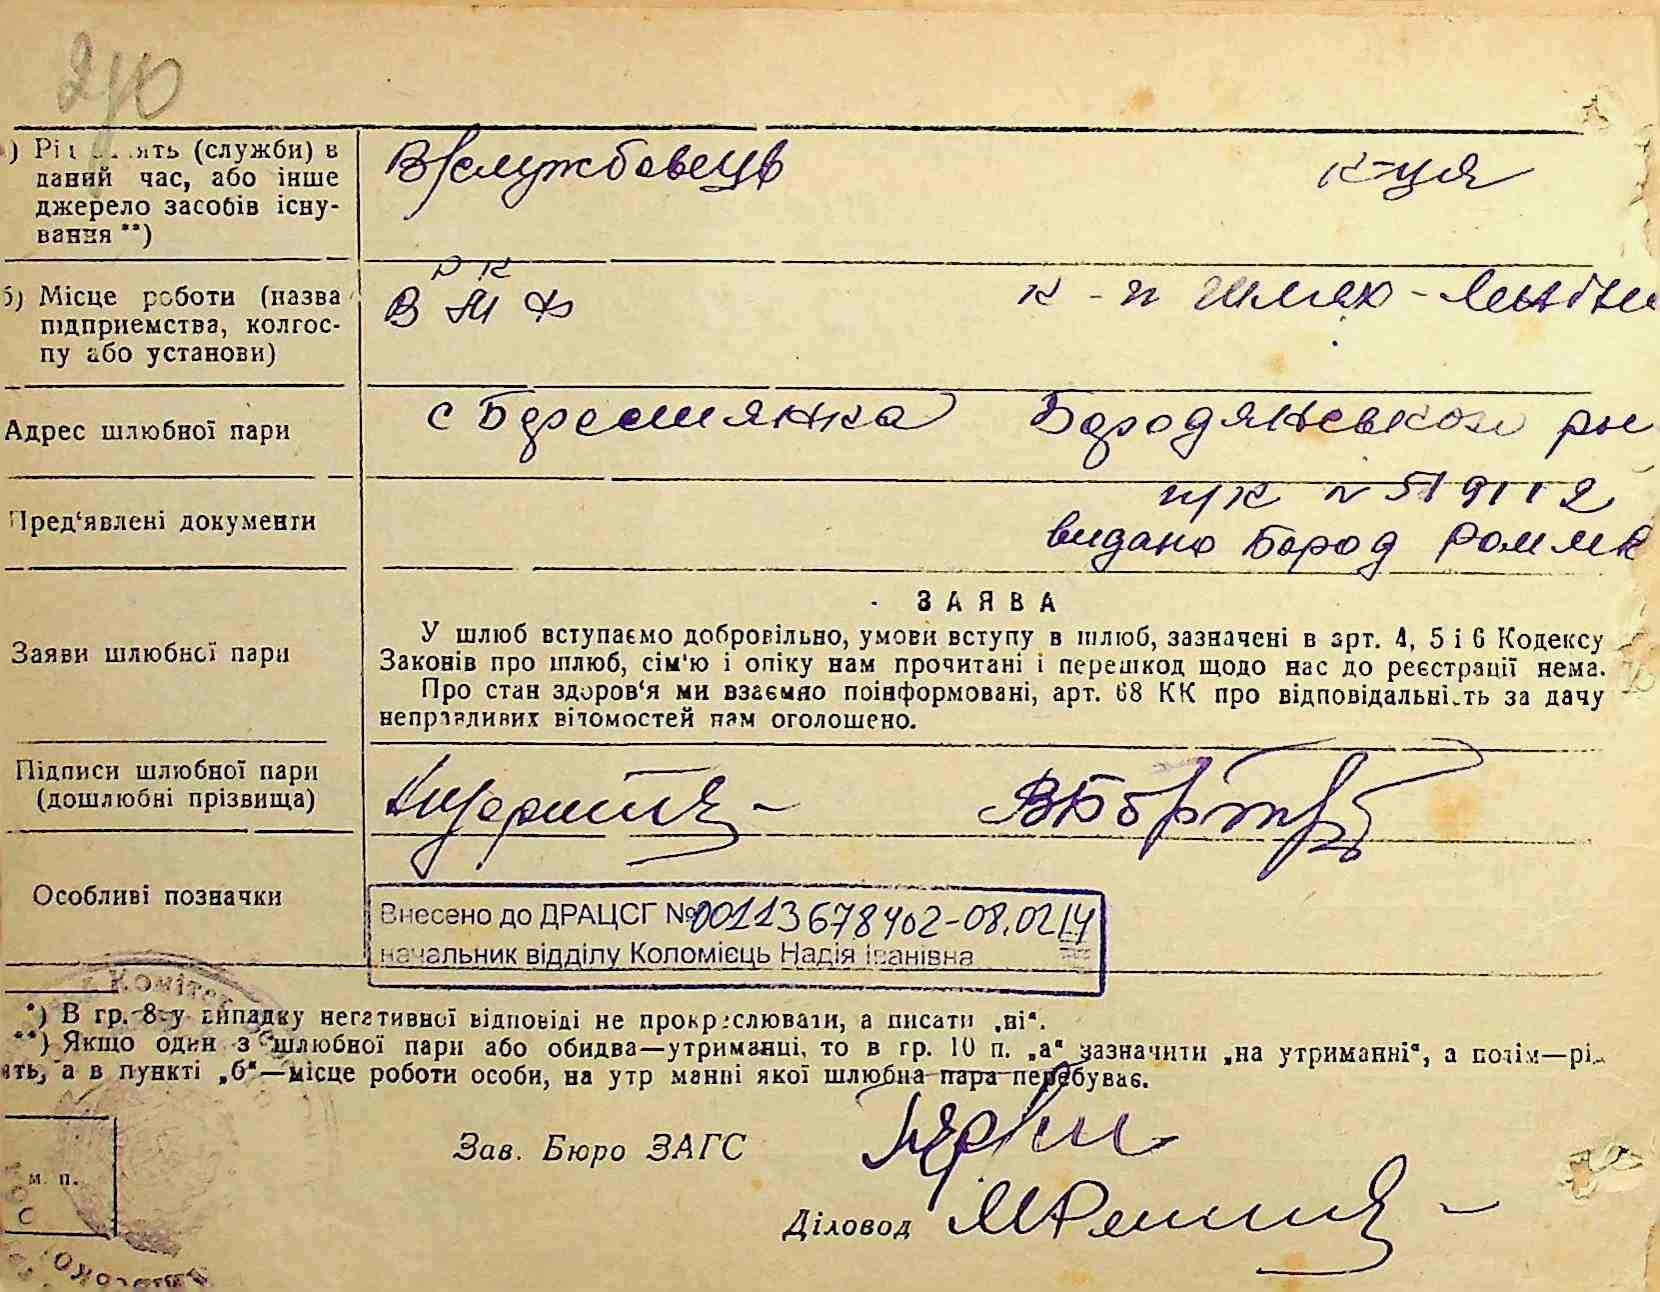 210
) Рід занять (служби) в
даний час, або інше
джерело засобів існу-
вання **)
В/службовець к-ця
б) Місце роботи (назва
підприємства, колгос-
пу або установи)
РК
В М Ф к-п Шлях-
Адрес шлюбної пари
с Берестянка Бородянського р-н
Пред‘явлені документи
п/к № 519112
видано Бород
Заяви шлюбної пари
ЗАЯВА
У шлюб вступаємо добровільно, умови вступу в шлюб, зазначені в арт. 4, 5 і 6 Кодексу
Законів про шлюб, сім‘ю і опіку нам прочитані і перешкод щодо нас до реєстрації нема.
Про стан здоров‘я ми взаємно поінформовані, арт. 68 КК про відповідальність за дачу
неправдивих відомостей нам оголошено.
Підписи шлюбної пари
(дошлюбні прізвища)
Особливі позначки
Внесено до ДРАЦСГ № 00113678402-08.02.14
начальник відділу Коломієць Надія Іванівна
*) В гр. 8 у випадку негативної відповіді не прокреслювати, а писати „ні“.
**) Якщо один з шлюбної пари або обидва—утриманці, то в гр. 10 п. „а“ зазначити „на утриманні“, а потім—рі
ять, а в пункті „б“—місце роботи особи, на утр манні якої шлюбна пара перебуває.
Зав. Бюро ЗАГС
м. п.
Діловод